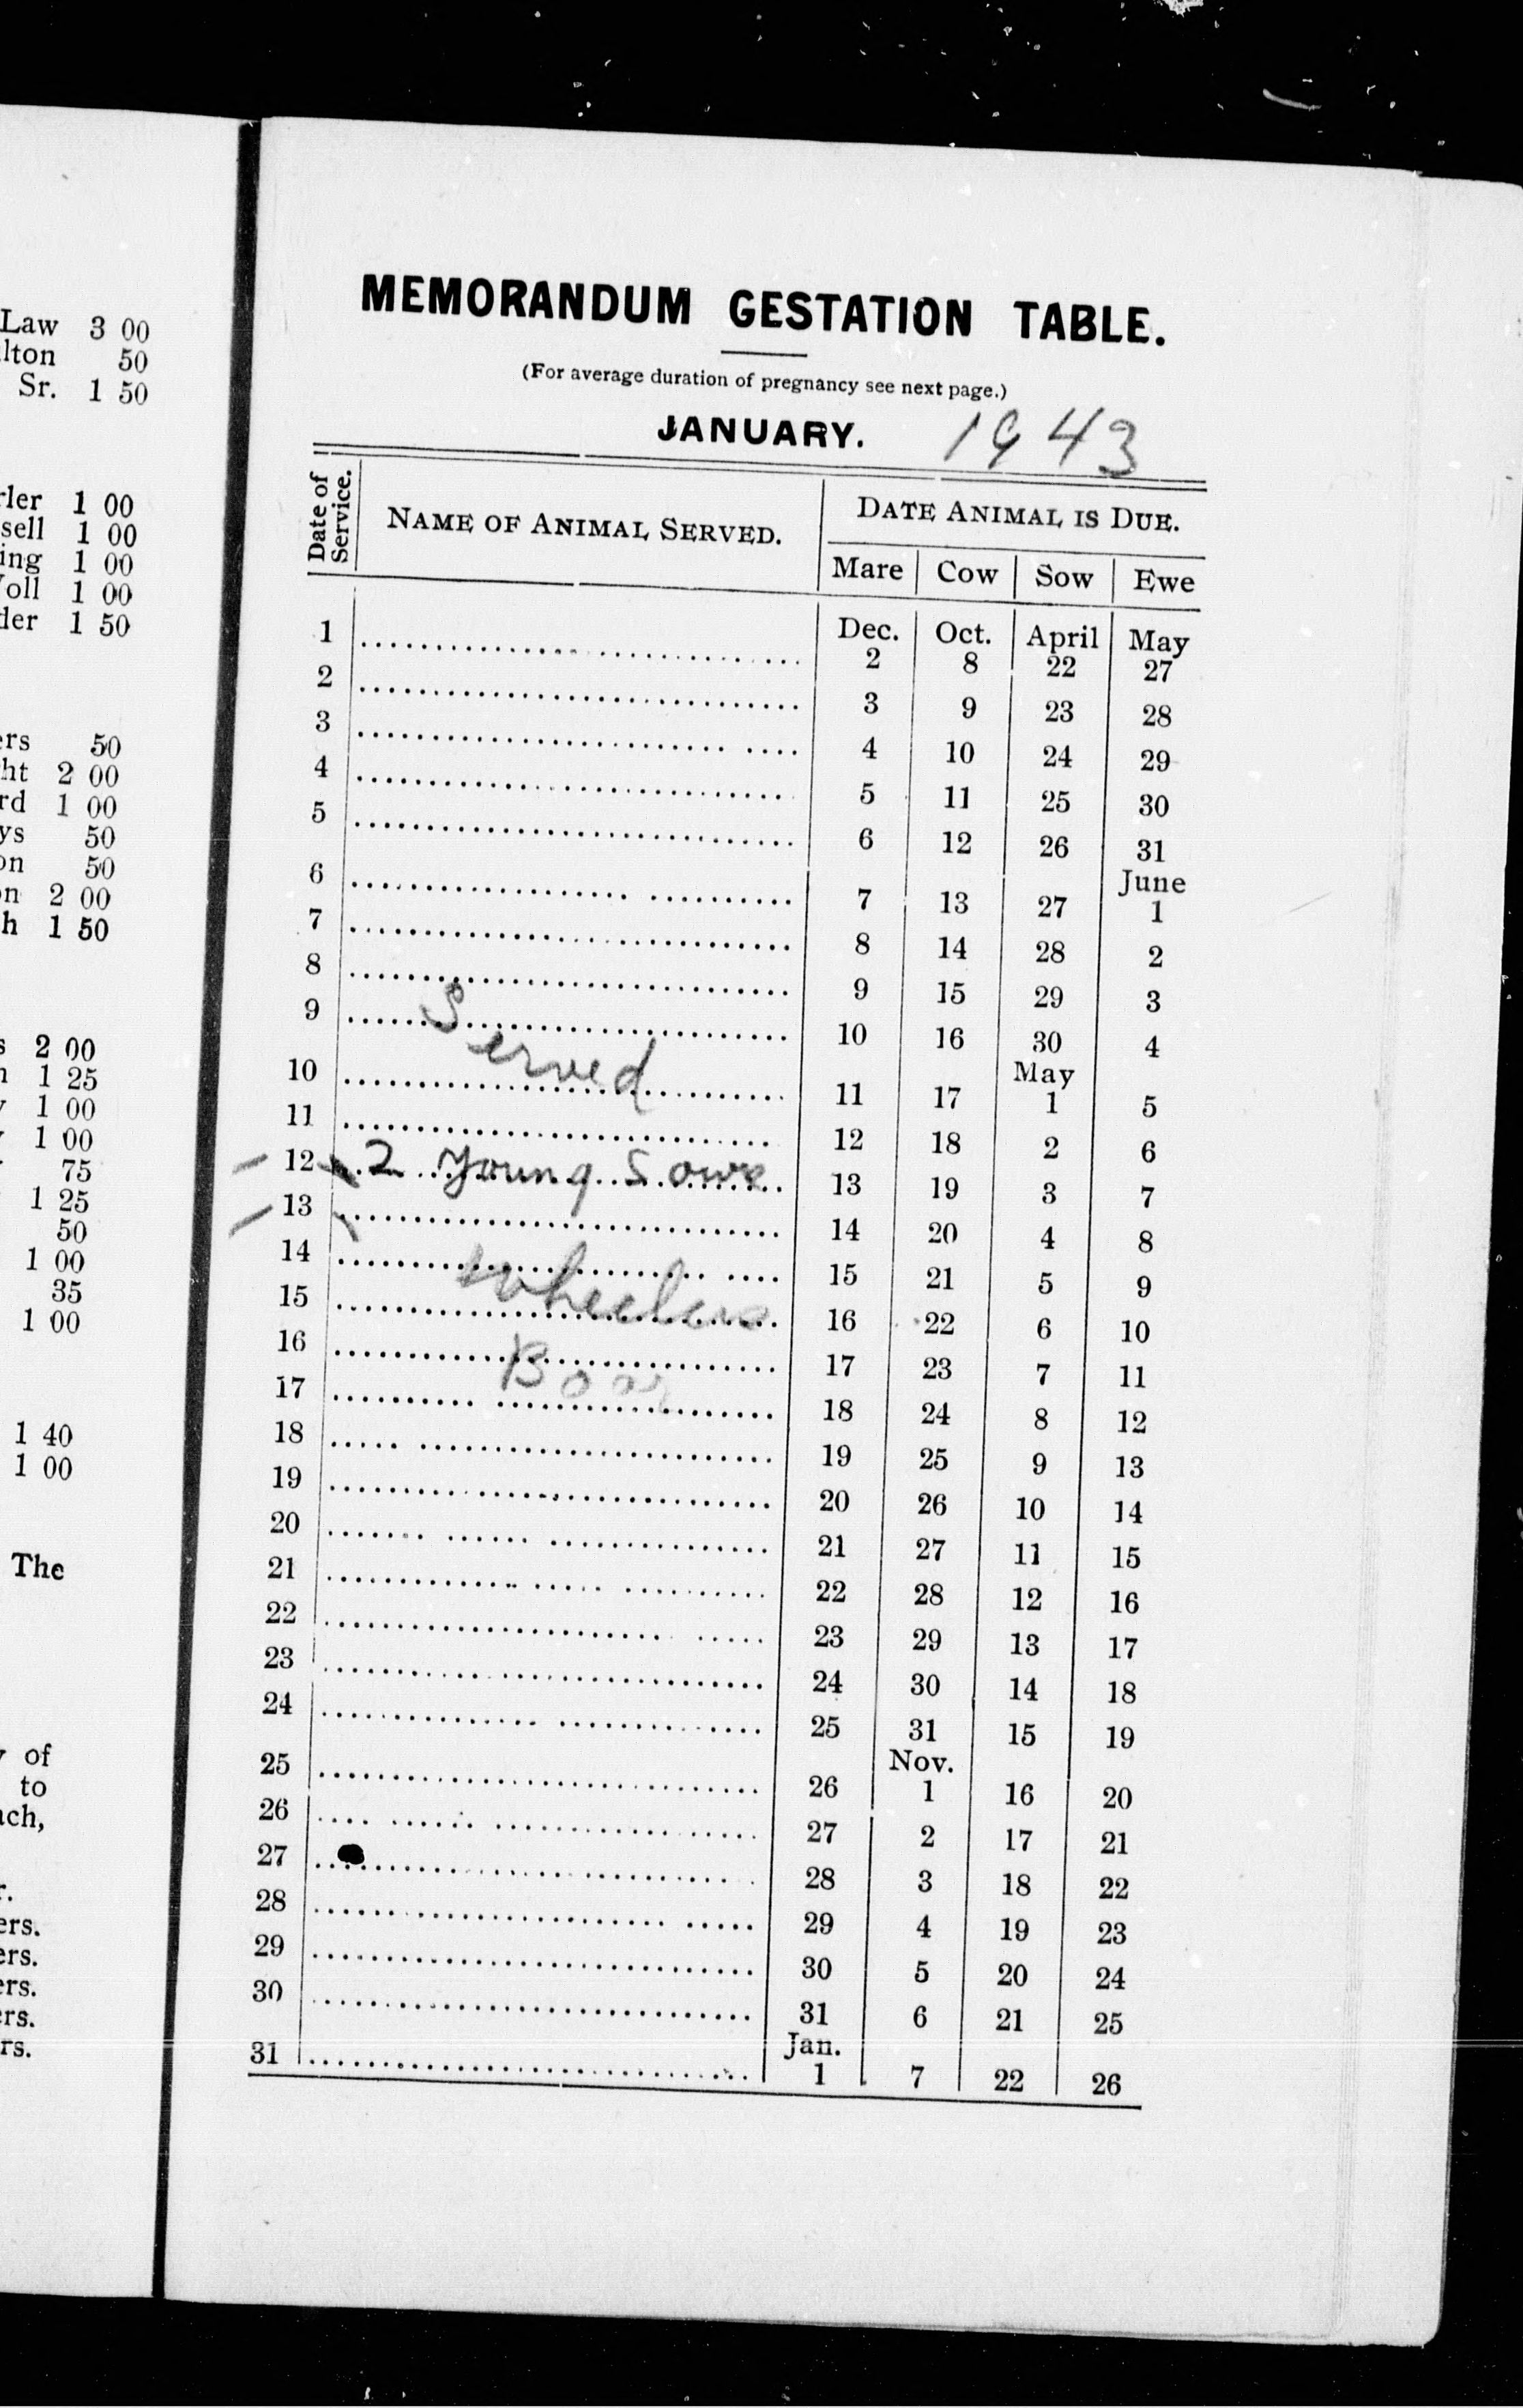 Law 3 00
lton 50
Sr. 1 50
rler 1 00
sell 1 00
ing 1 00
oll 1 00
der 1 50
ers 50
ht 2 00
rd 1 00
ys 50
on 50
on 2 00
h 1 50
s 2 00
1 25
1 00
1 00
75
1 25
50
1 00
35
1 00
1 40
1 00
The
of
to
ach,
r.
ers.
ers.
ers.
ers.
rs.
MEMORANDUM GESTATION TABLE.
(For average duration of pregnancy see next page.)
JANUARY. 1943
Date of Service. NAME OF ANIMAL SERVED. DATE ANIMAL IS DUE.
Mare Cow Sow Ewe
Dec. Oct. April May
1 2 8 22 27
2 3 9 23 28
3 4 10 24 29
4 5 11 25 30
5 6 12 26 31
June
6 7 13 27 1
7 8 14 28 2
8 9 15 29 3
9 Served 10 16 30 4
May
10 11 17 1 5
11 12 18 2 6
12 2 young Sows 13 19 3 7
13 14 20 4 8
14 Wheelers 15 21 5 9
15 16 22 6 10
16 Boar 17 23 7 11
17 18 24 8 12
18 19 25 9 13
19 20 26 10 14
20 21 27 11 15
21 22 28 12 16
22 23 29 13 17
23 24 30 14 18
24 25 31 15 19
Nov.
25 26 1 16 20
26 27 2 17 21
27 28 3 18 22
28 29 4 19 23
29 30 5 20 24
30 31 6 21 25
Jan.
31 1 7 22 26